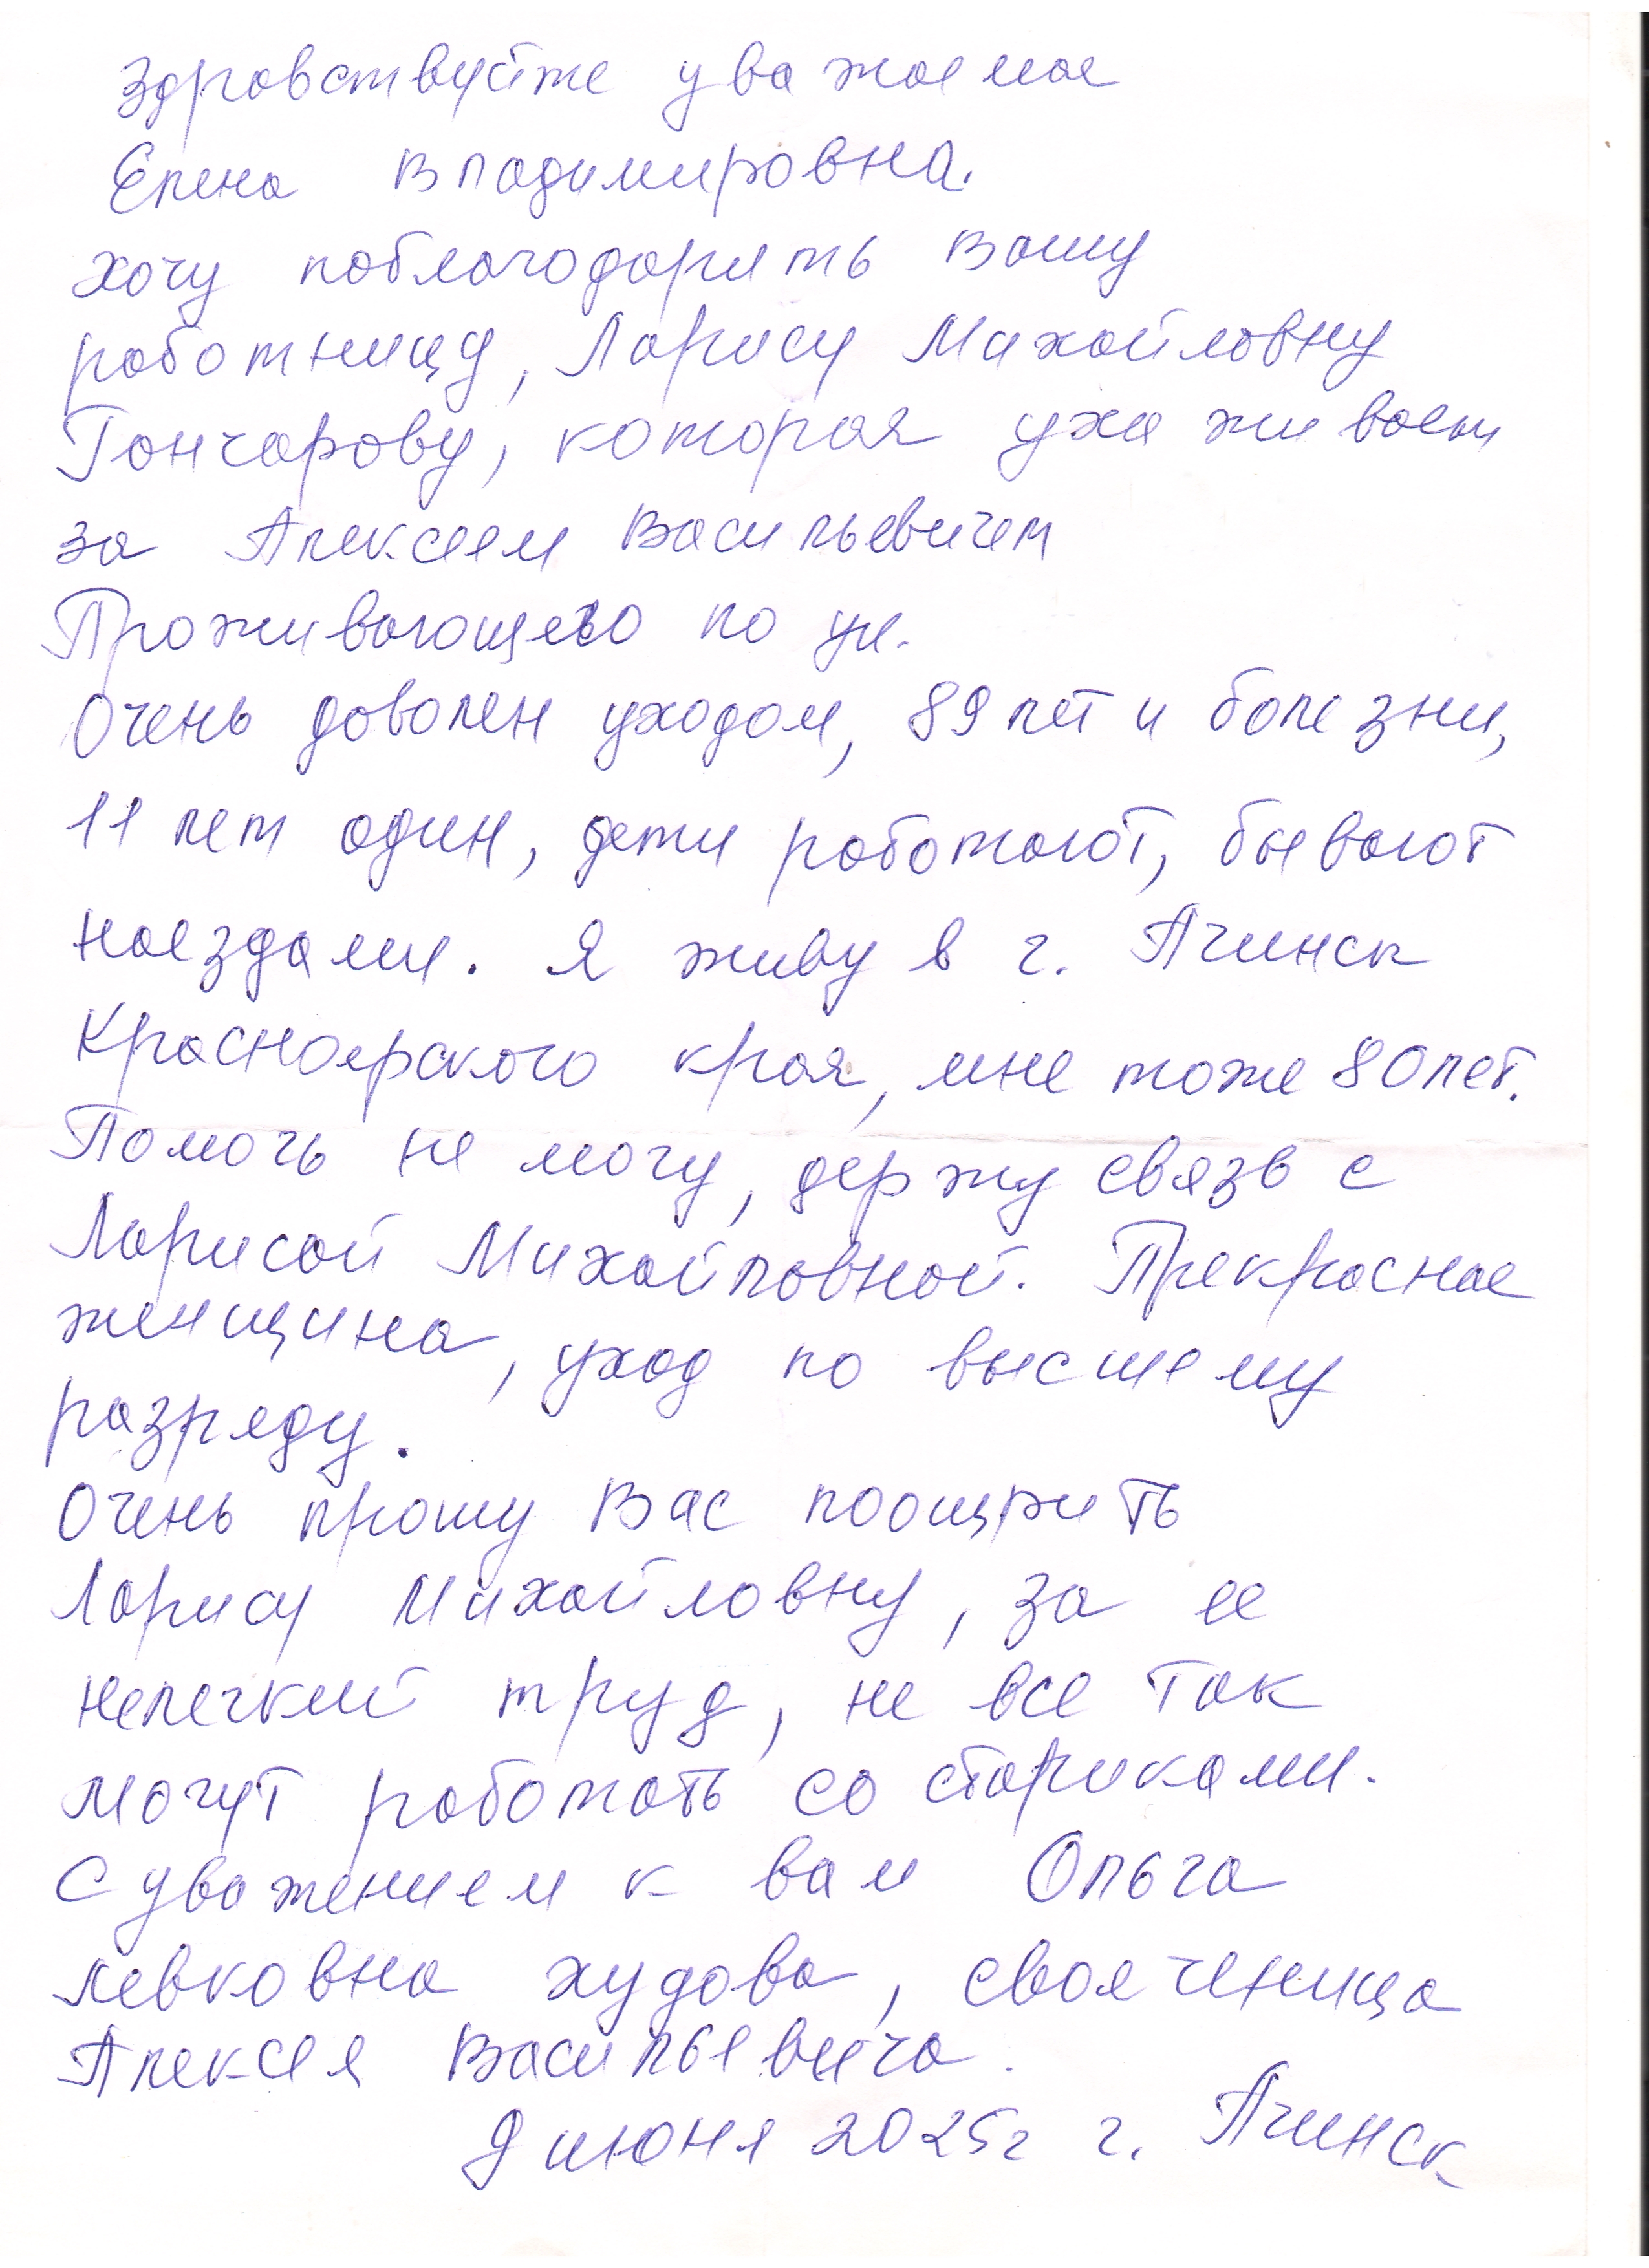 Здравствуйте уважаемая
Елена Владимировна.
Хочу поблагодарить Вашу
работницу, Ларису Михайловну
Гончарову, которая ухаживает
за Алексеем Васильевичем
Проживающего по ул.
Очень доволен уходом, 89 лет и болезни,
11 лет один, дети работают, бывают
наездами. Я живу в г. Ачинск
Красноярского края, мне тоже 80 лет.
Помочь не могу, держу связь с
Ларисой Михайловной. Прекрасная
женщина, уход по высшему
разряду.
Очень прошу Вас поощрить
Ларису Михайловну, за ее
нелегкий труд, не все так
могут работать со стариками.
С уважением к вам Ольга
Левковна Худова, свояченица
Алексея Васильевича.
9 июня 2025г г. Ачинск